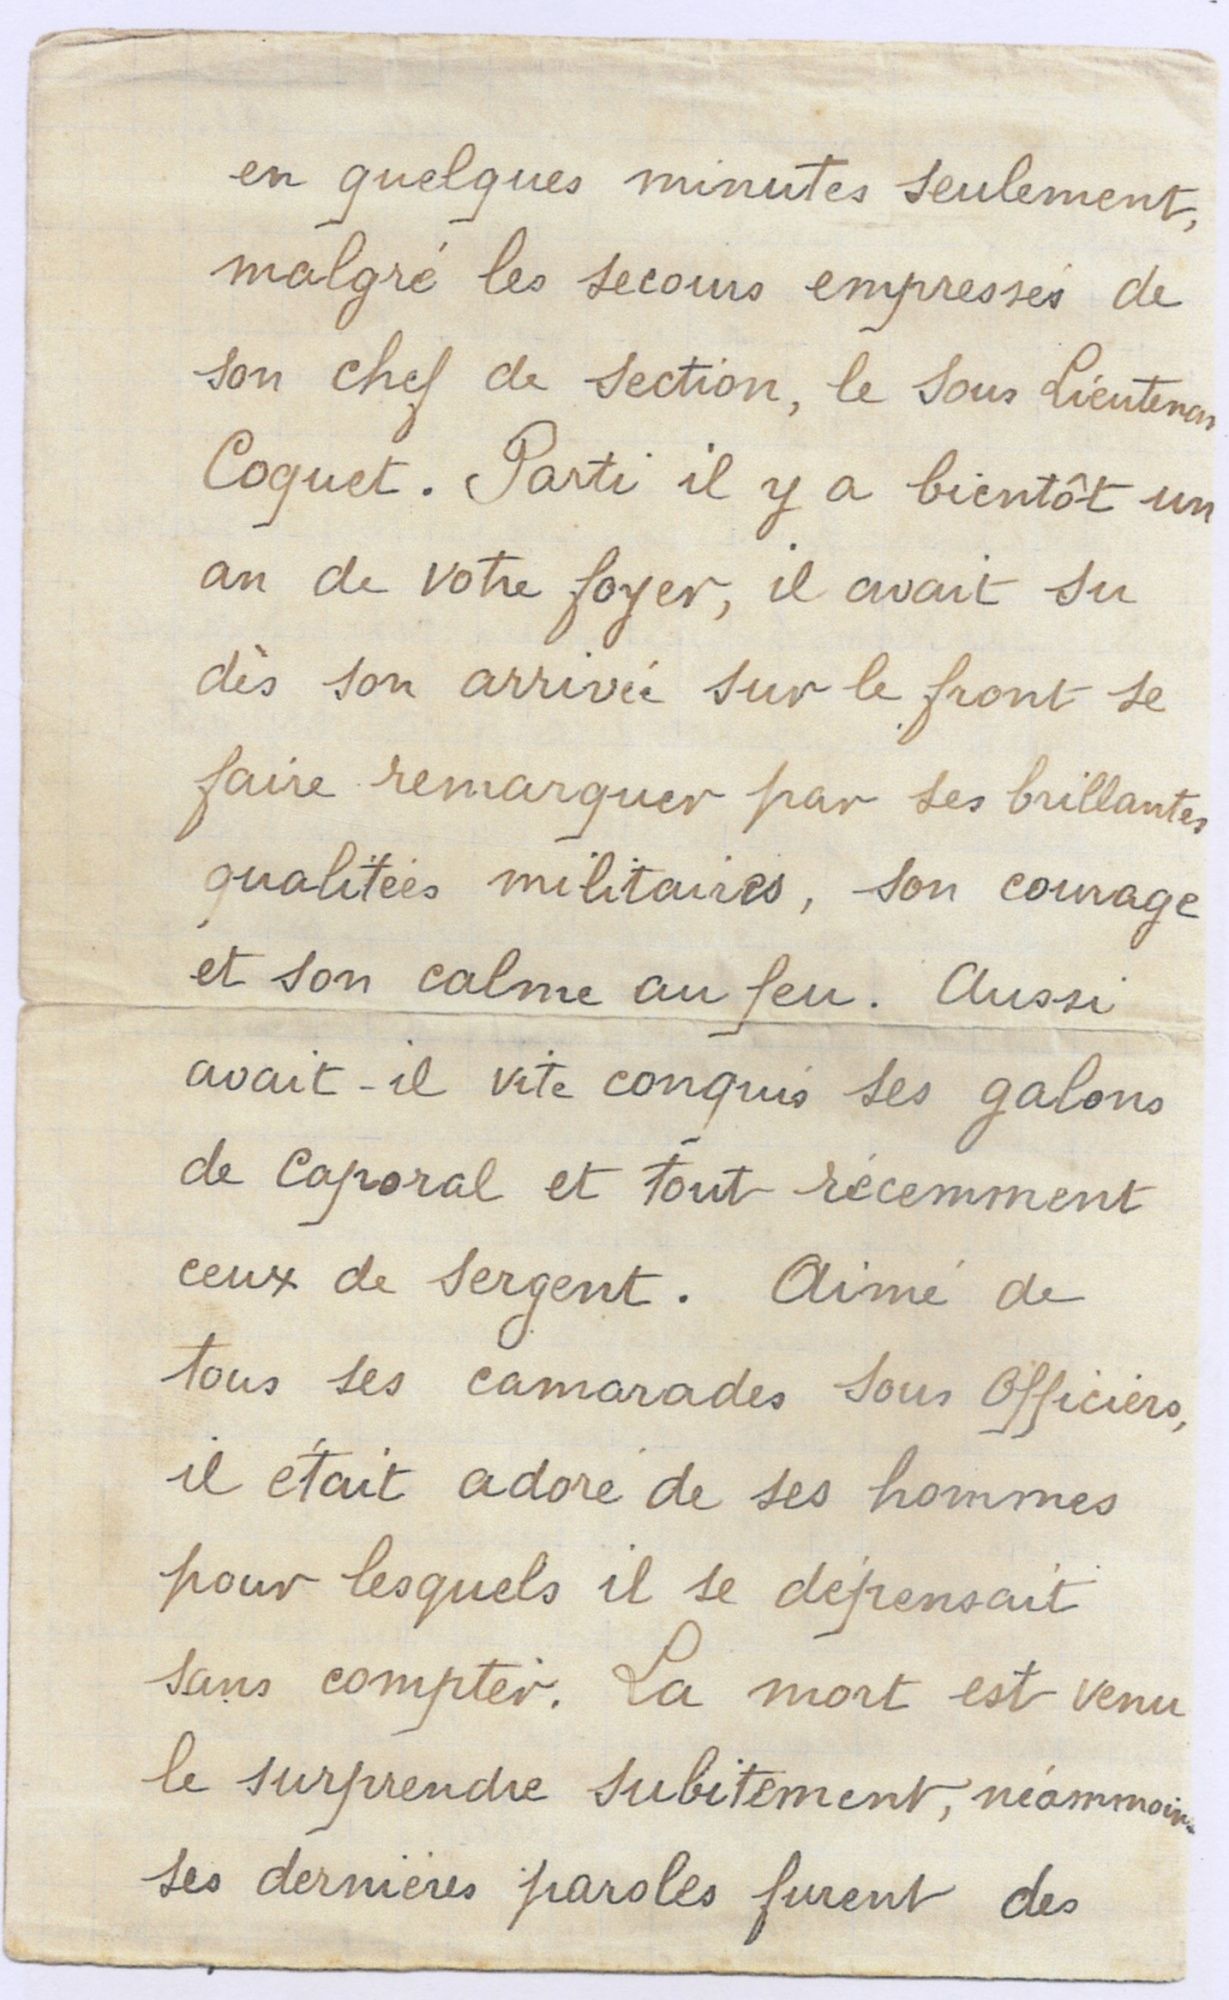 en quelques minutes seulement,
malgré les secours empressés de
son chef de section, le sous Lieutenan
Coquet. Parti il y a bientôt un
an de votre foyer, il avait su
dès son arrivée sur le front se
faire remarquer par ses brillantes
qualitées militaires, son courage
et son calme au feu. Aussi
avait-il vite conquis ses galons
de Caporal et tout récemment
ceux de sergent. Aimé de
tous ses camarades sous Officiers,
il était adoré de ses hommes
pour lesquels il se dépensait
sans compter. La mort est venu
le surprendre subitement, néammoins
ses dernières paroles furent des